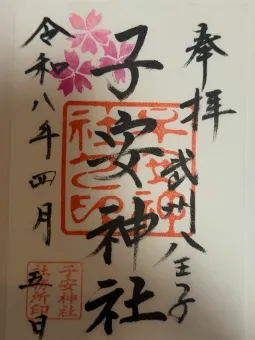 奉拝
武州八王子
子安神社
子安神社之印
令和八年四月五日
子安神社
社務所印